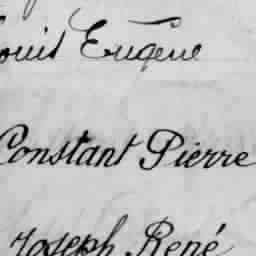 Louis Eugène
Constant Pierre
Joseph René